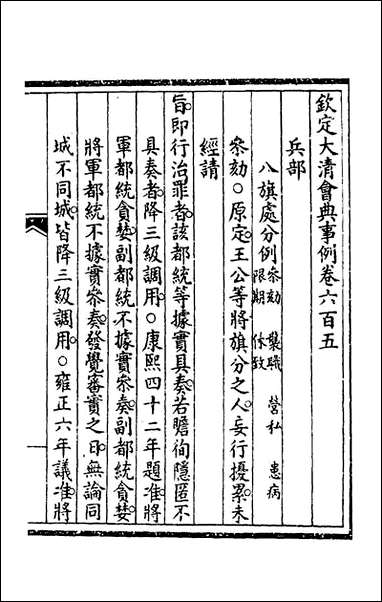 欽定大清會典事例卷六百五
兵部
八旗處分例 叅劾 襲職 營私 患病 限期 休致
叅劾○原定王公等將旗分之人妄行擾累未
經請
旨即行治罪者該都統等據實具奏若瞻徇隱匿不
具奏者降三級調用○康熙四十二年題准將
軍都統貪婪副都統不據實叅奏副都統貪婪
將軍都統不據實叅奏發覺審實之日無論同
城不同城皆降三級調用○雍正六年議准將